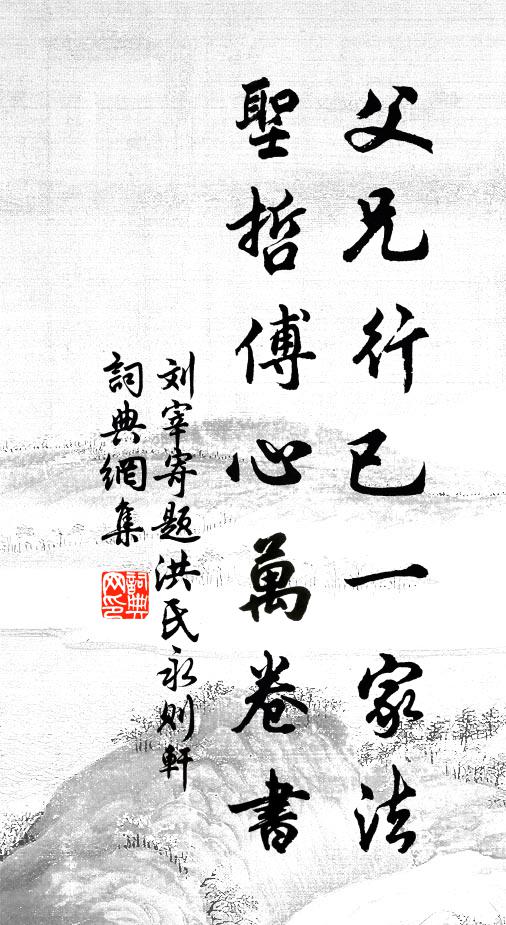 父兄行已一家法
聖哲傅心萬卷書
刘宰寄題洪氏永则軒
詞典網集
詞典网印